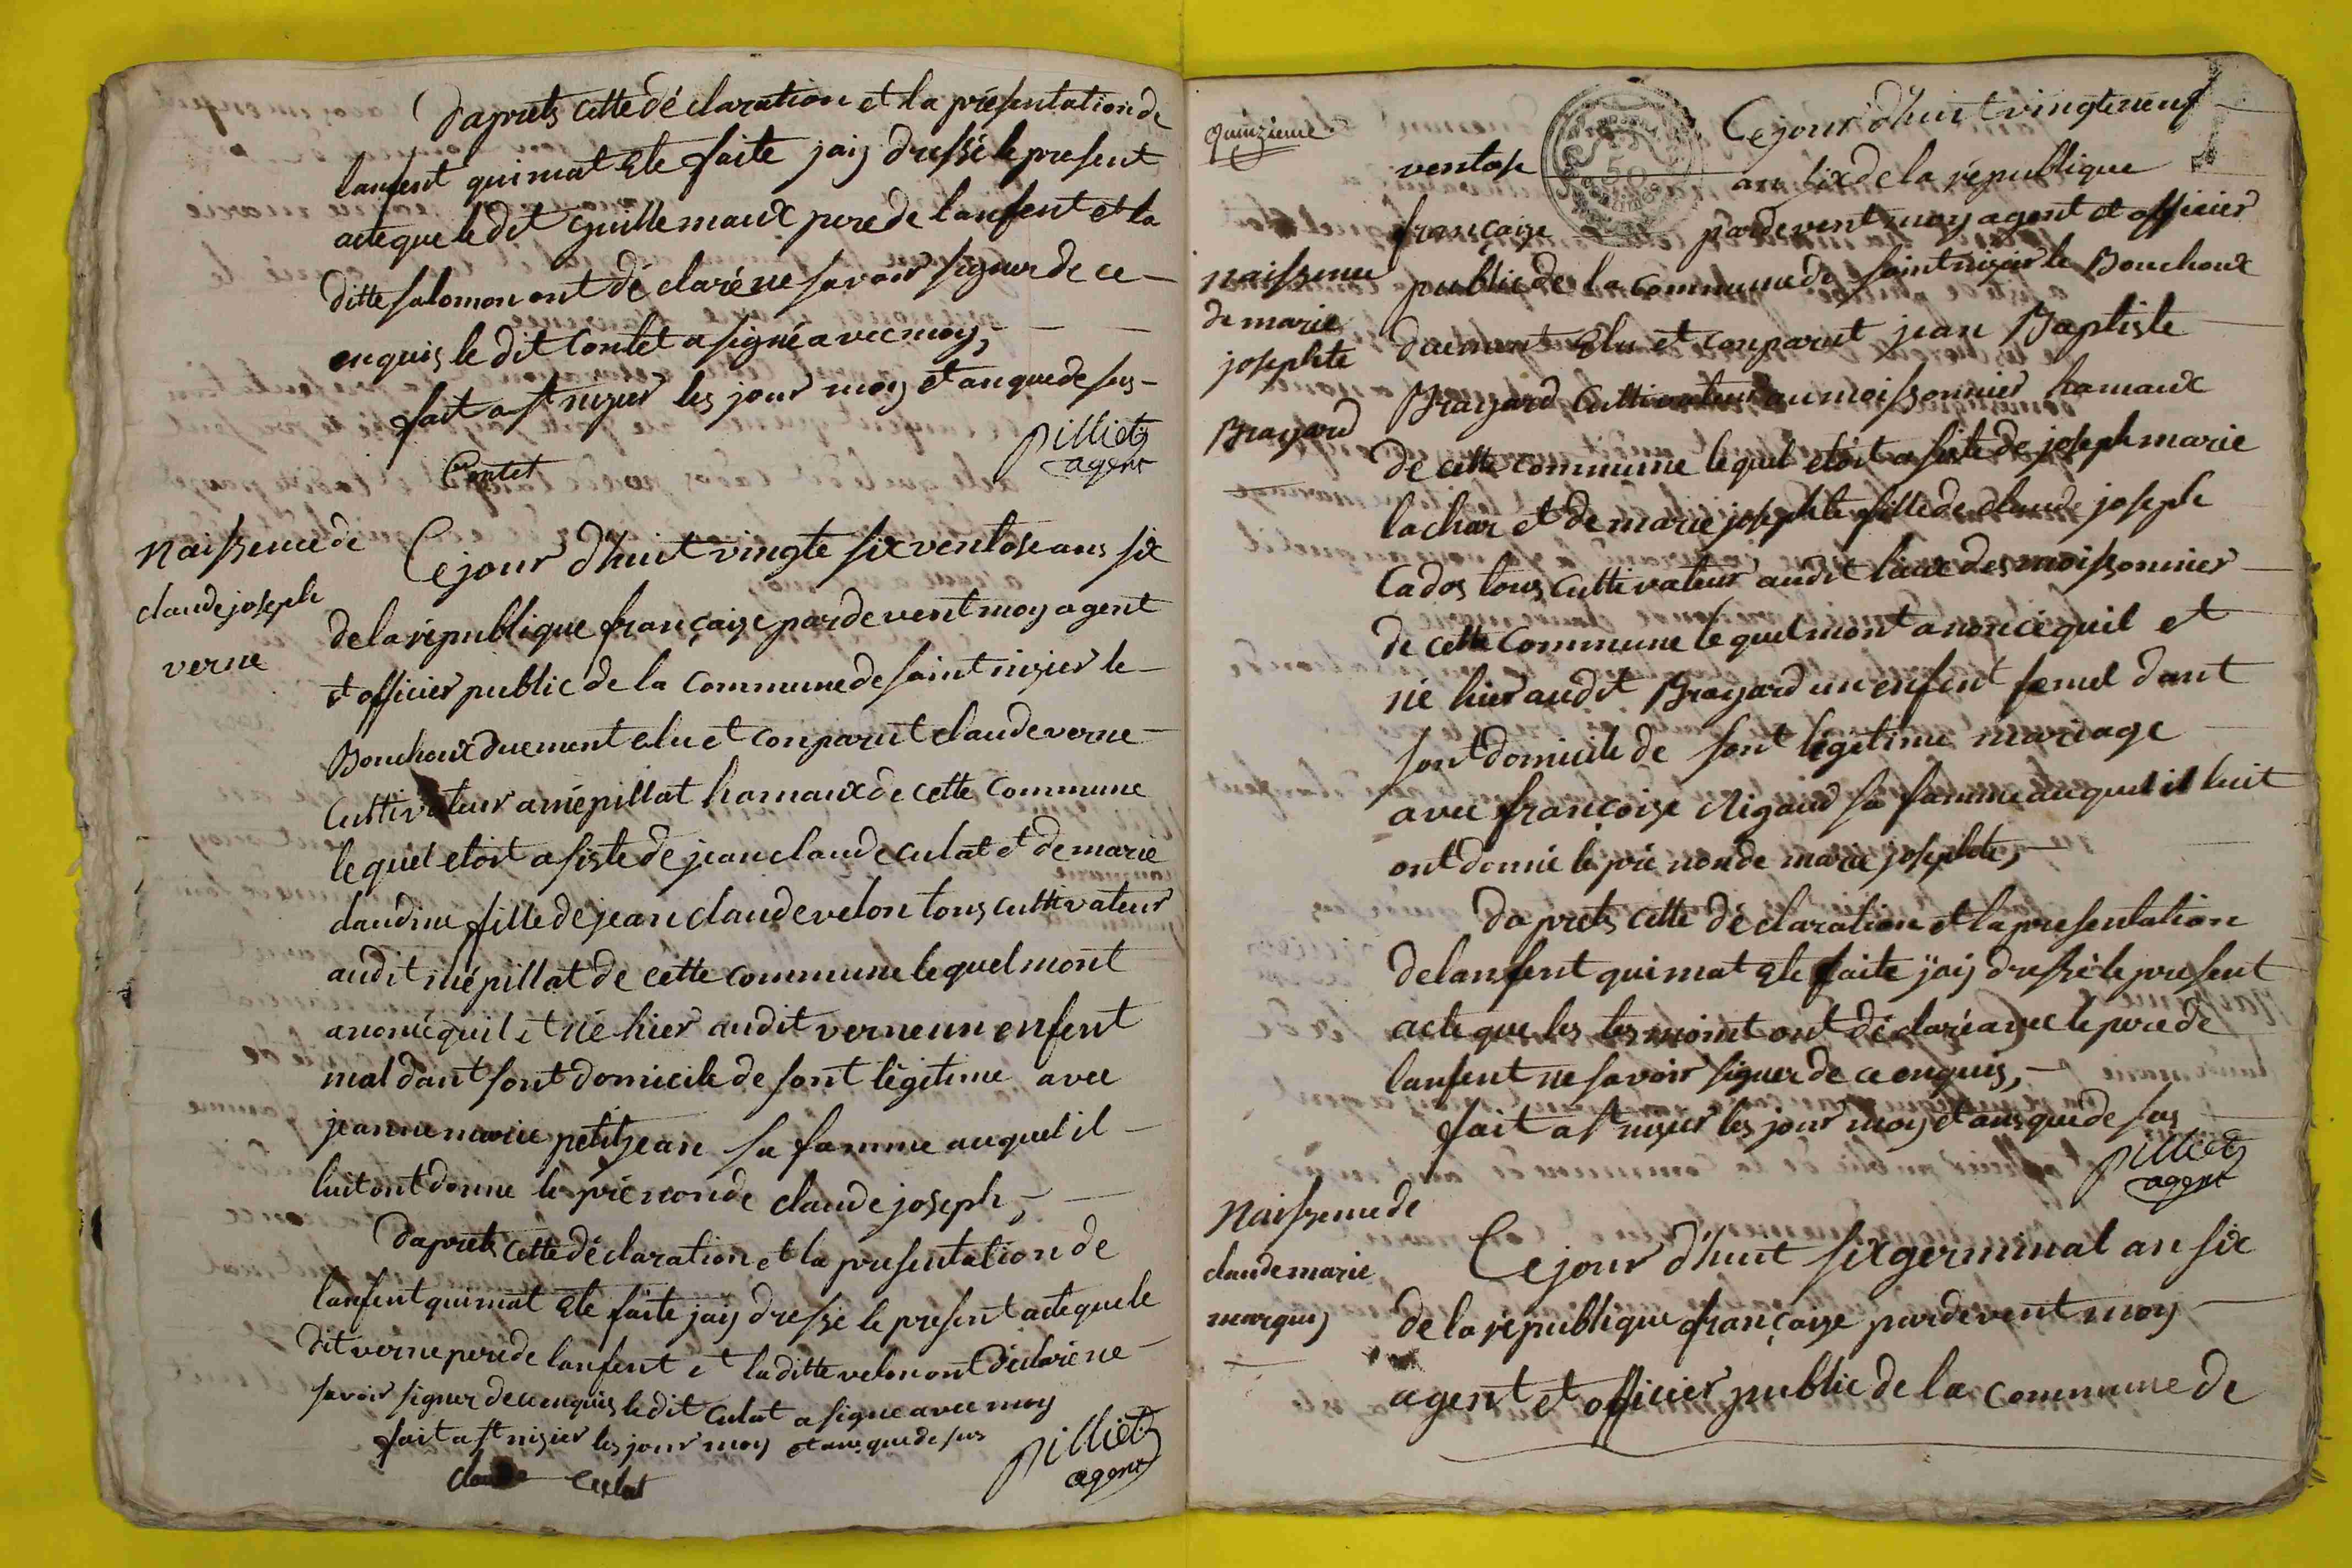 daprets cette dé claration et la présentation de
lanfent qui mat Ete faite jaiy dressé le present
acte que le dit Guillemaux pere de lanfent et la
ditte salomon ont dé claré ne savoir signer de ce
enquis le dit Contet a signé avec moy,
fait a st nizier les jour moy et an que de sus
Contet
Pilliet
agent
naissence de
claude joseph
verne
Ce jour d'huit vingte six ventose ans six
de la république françaize pardevent moy agent
et officier public de la commune de saint nizier le
Bouchoux duement elu et conparut claude verne
Cultivateur a mépillat hamaux de cette commune
le quel etoit asiste de jean claude culat et de marie
claudine fille de jean claude velon tous cultivateur
audit mépillat de cette commune le quel mont
anoncé quil et né hier audit verne un enfent
mal dant sont domicile de sont légitime avec
jeanne marie petitjean sa famme auquel il
luit ont donne le pré non de claude joseph,
daprets cette dé claration et la presentation de
lanfent qui mat Ete faite jaiy dressé le present acte que le
dit verne pere de lanfent et la ditte velon ont déclaré ne
savoir signer de ce enquis le dit culat a signe avec moy
fait a st nizier les jour moy et ans que de sus
claude Culat
Pilliet
agent
quinzieme
Ce jour d'huit vingte neuf
ventose an six de la république
française pardevent moy agent et officier
public de la commune de saint nizier le Bouchoux
duement Elu et conparut jean Baptiste
Brayard Cultivateur au moissonnier hamaux
de cette commune le quel etoit asiste de joseph marie
lachar et de marie josephte fille de claude joseph
Cados tous cultivateur audit laux des moissonnier
de cette Commune le quel mont anoncé quil et
né hier audit Brayard un enfent femel dant
sont domicile de sont légitime mariage
avec françoise Rigaud sa famme auquel il luit
ont donné le pré non de marie josephte,
naissence
de marie
josephte
Brayard
daprets cette dé claration et la presentation
de lanfent qui mat Ete faite jaiy dressé le present
acte que les tesmoint ont dé claré avec le pere de
lanfent ne savoir signer de ce enquis,
fait a st nizier les jour moy et ans que de sus
Pilliet
agent
naissence de
claude marie
marquis
Ce jour d'huit six germinal an six
de la république françaize pardevent moy
agent et officier public de la commune de